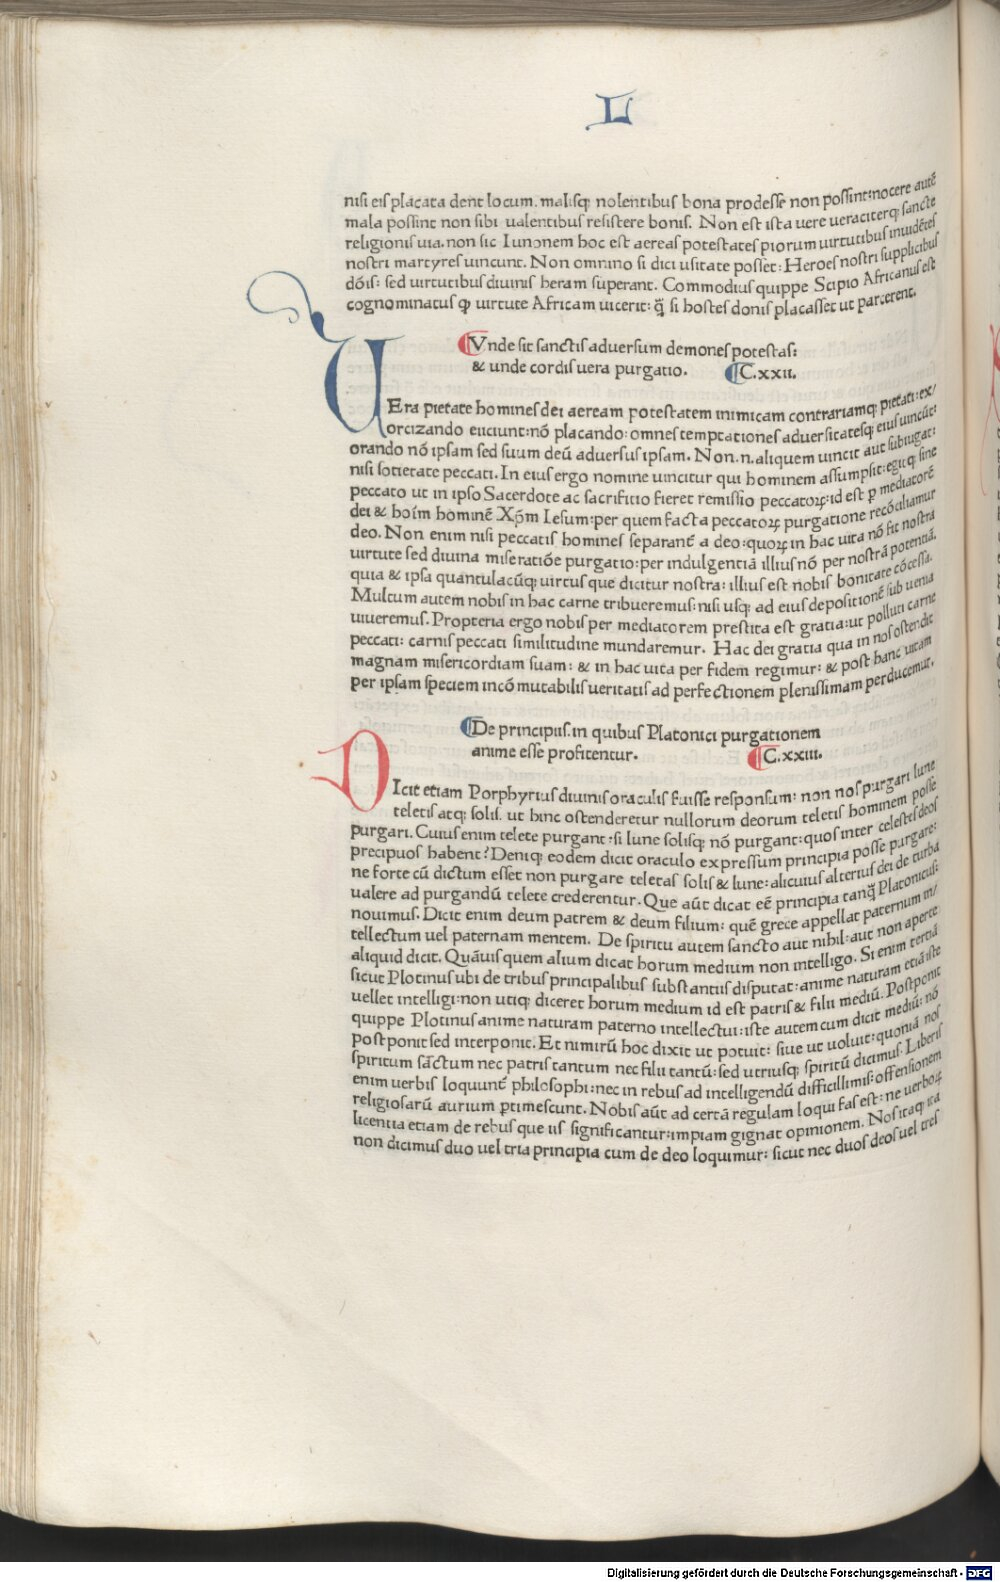 L
nisi eis placata dent locum. malisq; nolentibus bona prodesse non possint: nocere autē
mala possint non sibi ualentibus resistere bonis. Non est ista uere ueraciterq; sancte
religionis uia. non sic Iunonem hoc est aereas potestates piorum uirtutibus inuidētes
nostri martyres uincunt. Non omnino si dici usitate posset: Heroes nostri supplicibus
dōis: sed uirtutibus diuinis heram superant. Commodius quippe Scipio Africanus est
cognominatus ꝙ uirtute Africam uicerit: q̄ si hostes donis placasset ut parcerent.
Vnde sit sanctis aduersum demones potestas:
& unde cordis uera purgatio. C.xxii.
UEra pietate homines dei aeream potestatem inimicam contrariamq; pietati: ex/
orcizando eiiciunt: nō placando: omnes temptationes aduersitatesq; eius uincūt:
orando nō ipsam sed suum deū aduersus ipsam. Non .n. aliquem uincit aut subiugat:
nisi societate peccati. In eius ergo nomine uincitur qui hominem assumpsit: egitq; sine
peccato ut in ipso Sacerdote ac sacrificio fieret remissio peccatoꝝ: id est ꝑ mediatorē
dei & hoīm hominē Xp̄m Iesum: per quem facta peccatoꝝ purgatione recōciliamur
deo. Non enim nisi peccatis homines separant̄ a deo: quoꝝ in hac uita nō fit nostra
uirtute sed diuina miseratiōe purgatio: per indulgentiā illius nō per nostrā potentiā.
quia & ipsa quantulacūq; uirtus que dicitur nostra: illius est nobis bonitate cōcessa.
Multum autem nobis in hac carne tribueremus: nisi usq; ad eius depositionē sub uenia
uiueremus. Propteria ergo nobis per mediatorem prestita est gratia: ut polluti carne
peccati: carnis peccati similitudine mundaremur. Hac dei gratia qua in nos ostendit
magnam misericordiam suam: & in hac uita per fidem regimur: & post hanc uitam
per ipsam speciem incōmutabilis ueritatis ad perfectionem plenissimam perducemur.
De principiis. in quibus Platonici purgationem
anime esse profitentur. C.xxiii.
DIcit etiam Porphyrius diuinis oraculis fuisse responsum: non nos purgari lune
teletis atq; solis. ut hinc ostenderetur nullorum deorum teletis hominem posse
purgari. Cuius enim telete purgant: si lune solisq; nō purgant: quos inter celestes deos
precipuos habent? Deniq; eodem dicit oraculo expressum principia posse purgare:
ne forte cū dictum esset non purgare teletas solis & lune: alicuius alterius dei de turba
ualere ad purgandū telete crederentur. Que aūt dicat eē principia tanq̄ Platonicus:
nouimus. Dicit enim deum patrem & deum filium: quē grece appellat paternum in/
tellectum uel paternam mentem. De spiritu autem sancto aut nihil: aut non aperte
aliquid dicit. Quāuis quem alium dicat horum medium non intelligo. Si enim tertiā
sicut Plotinus ubi de tribus principalibus substantiis disputat: anime naturam etiā iste
uellet intelligi: non utiq; diceret horum medium id est patris & filii mediū. Postponit
quippe Plotinus anime naturam paterno intellectui: iste autem cum dicit mediū: nō
postponit sed interponit. Et nimirū hoc dixit ut potuit: siue ut uoluit: quoniā nos
spiritum sāctum nec patris tantum nec filii tantū: sed utriusq; spiritū dicimus. Liberis
enim uerbis loquunt̄ philosophi: nec in rebus ad intelligendū difficillimis: offensionem
religiosarū aurium ꝑtimescunt. Nobis aūt ad certā regulam loqui fas est: ne uerboꝝ
licentia etiam de rebus que iis significantur: impiam gignat opinionem. Nos itaq; ita
non dicimus duo uel tria principia cum de deo loquimur: sicut nec duos deos uel tres
Digitalisierung gefördert durch die Deutsche Forschungsgemeinschaft - DFG